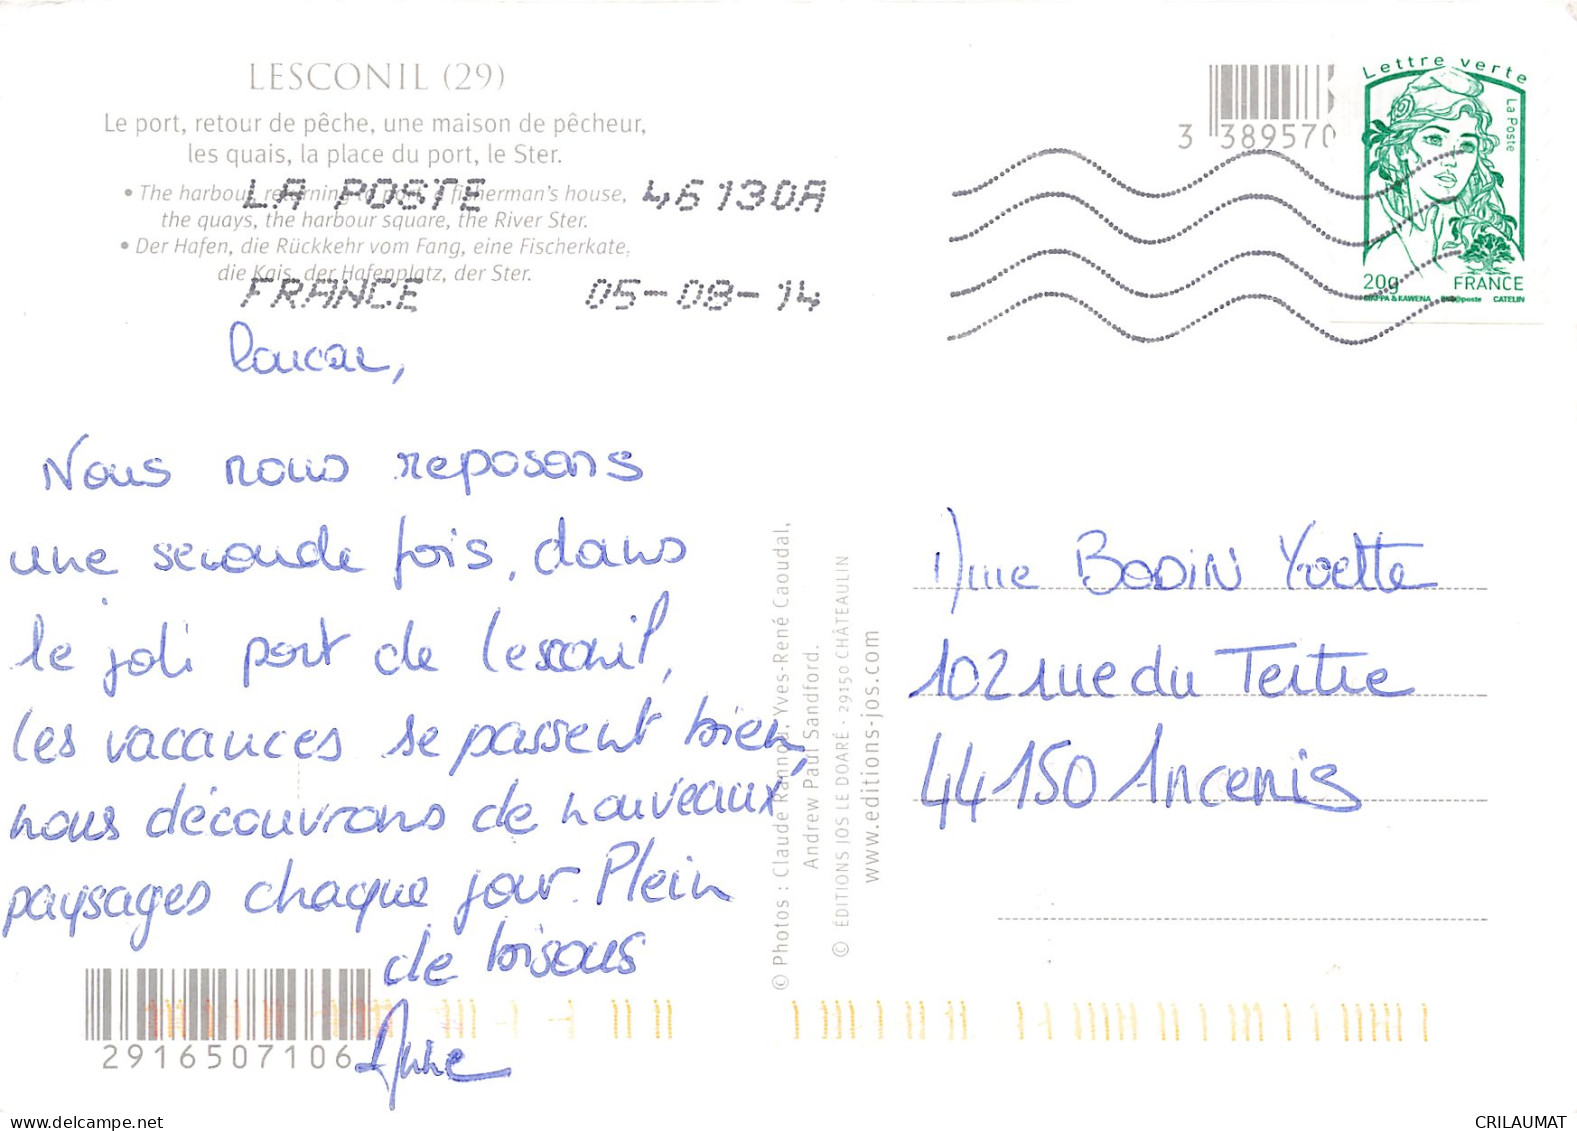 LESCONIL (29)
Le port, retour de pêche, une maison de pêcheur,
les quais, la place du port, le Ster.
• The harbour, returning to port, a fisherman's house,
the quays, the harbour square, the River Ster.
• Der Hafen, die Rückkehr vom Fang, eine Fischerkate,
die Kais, der Hafenplatz, der Ster.
LA POSTE 46130A
FRANCE 05-08-14
3 389570
Lettre verte
La Poste
20g FRANCE
CIAPPA & KAWENA CATELIN
Coucou,
Nous nous reposons
une seconde fois, dans
le joli port de Lesconil,
les vacances se passent bien,
nous découvrons de nouveaux
paysages chaque jour. Plein
de bisous
Anne
2916507106
© Photos : Claude Rannou, Yves-René Caoudal,
Andrew Paul Sandford.
© ÉDITIONS JOS LE DOARÉ - 29150 CHÂTEAULIN
www.editions-jos.com
Mme BODIN Yvette
102 rue du Tertre
44150 Ancenis
CRILAUMAT